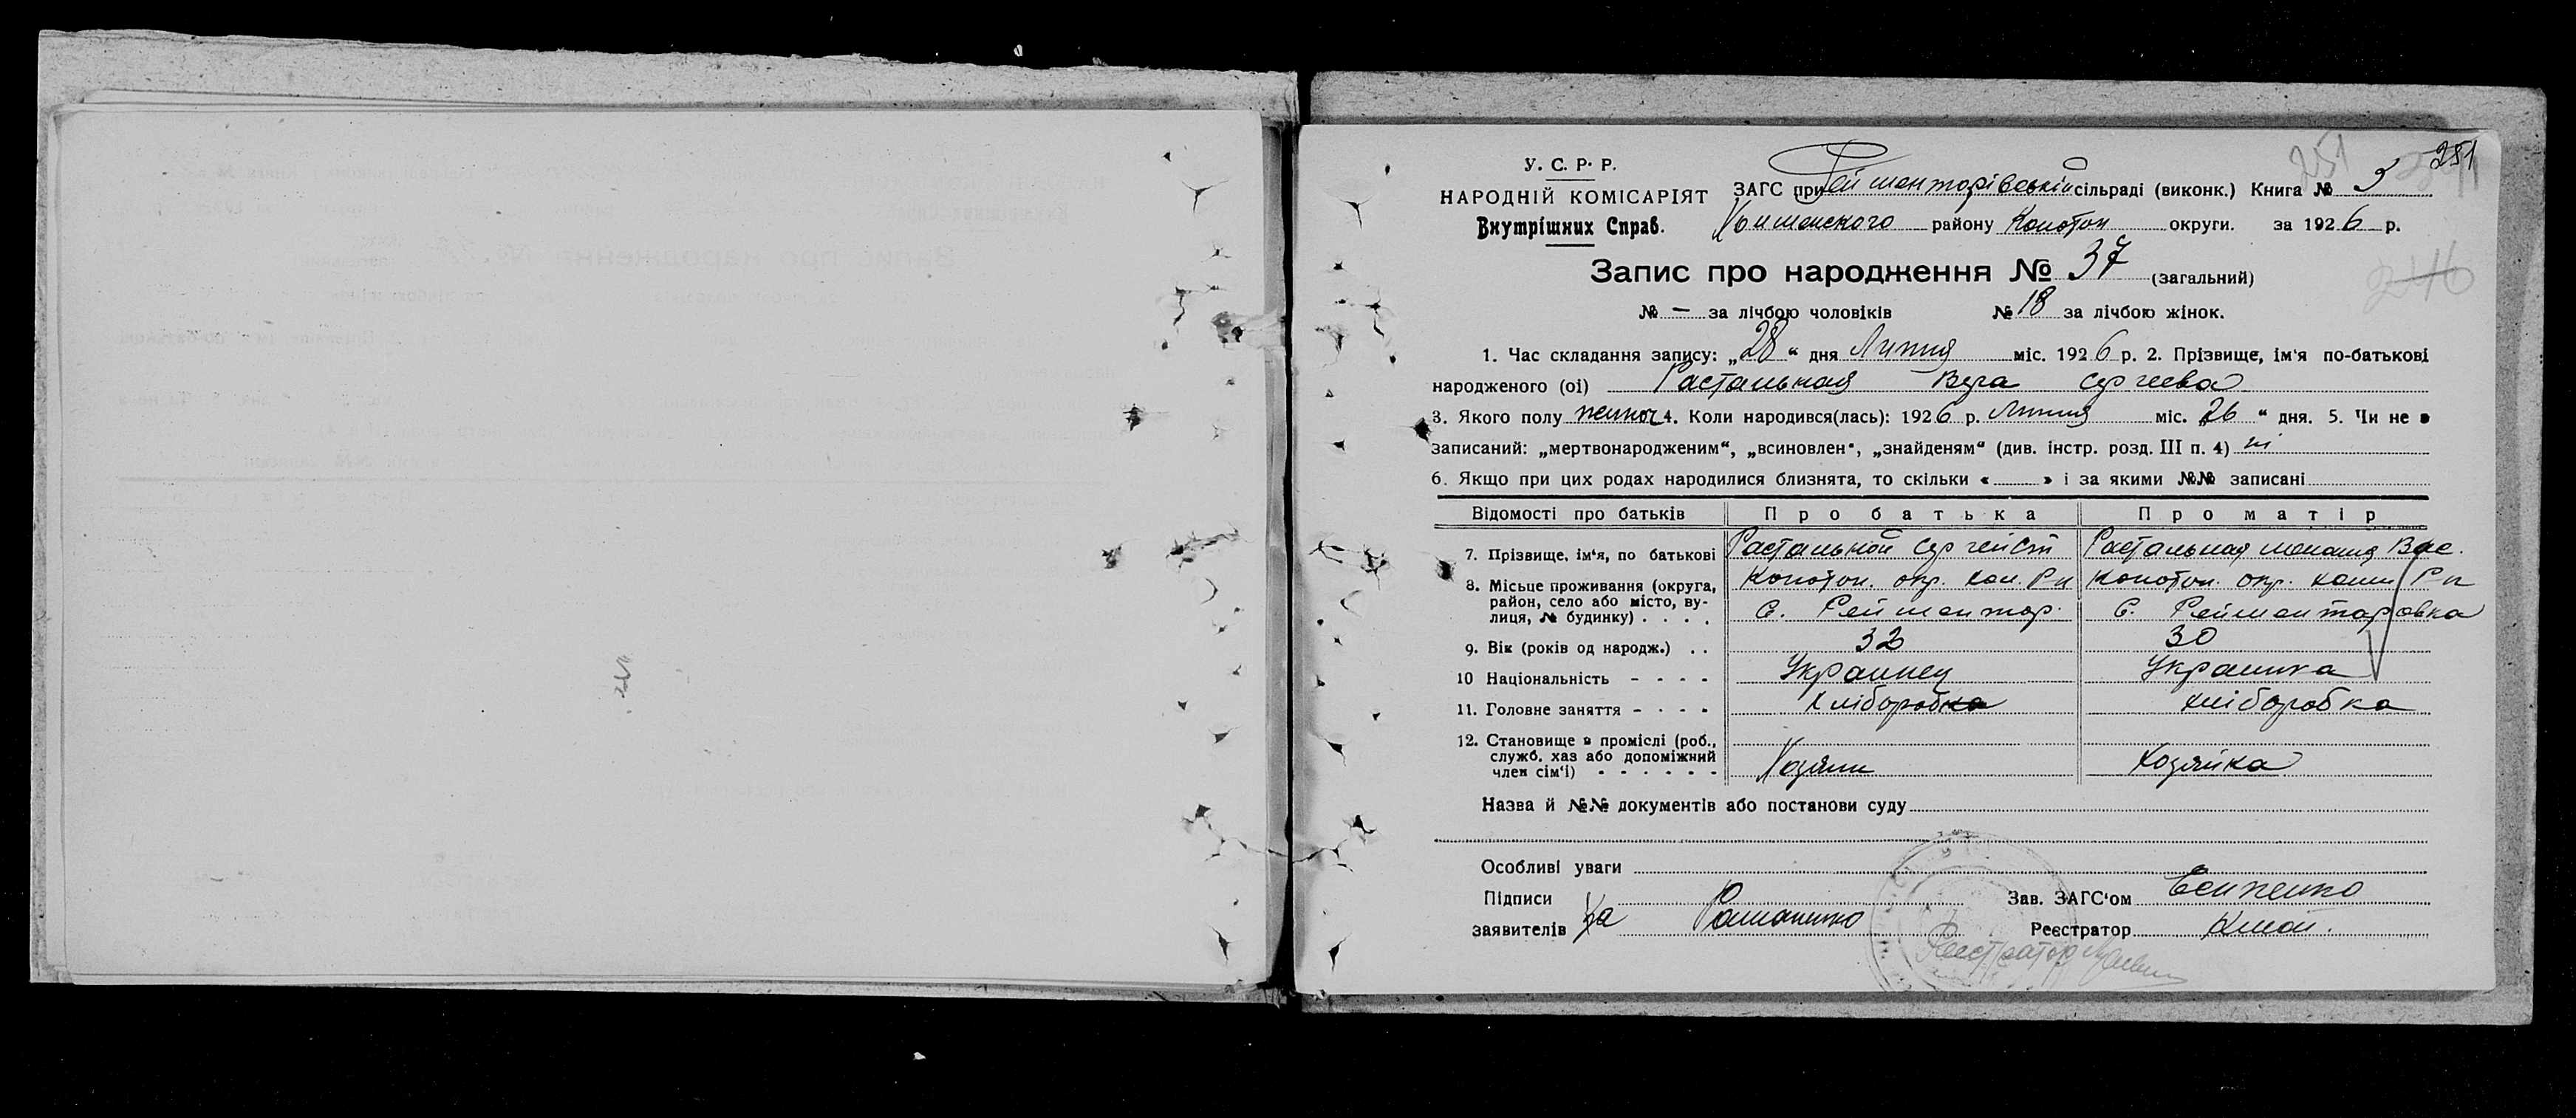 251
251
У. С. Р. Р.
НАРОДНІЙ КОМІСАРІЯТ
Внутрішних Справ.
ЗАГС при Рейментарівській сільраді (виконк.) Книга № 3
району Конотоп округи. за 1926 р.
Запис про народження № 37 (загальний)
246
№ — за лічбою чоловіків № 18 за лічбою жінок.
1. Час складання запису: „28“ дня Липня міс. 1926 р. 2. Прізвище, ім'я по-батькові
народженого (ої) Растальная Вера Сергеева
3. Якого полу женог 4. Коли народився(лась): 1926 р. Липня міс. „26“ дня. 5. Чи не в
записаний: „мертвонародженим“, „всиновлен“, „знайденям“ (див. інстр. розд. III п. 4) ні
6. Якщо при цих родах народилися близнята, то скільки « » і за якими №№ записані
Відомості про батьків Про батька Про матір
7. Прізвище, ім'я, по батькові Растальной Сергей Растальная Вас.
8. Місьце проживання (округа, Конотоп. окр. Кон. Рн Конотоп. окр. Рн
район, село або місто, ву-
лиця, № будинку) . . . . С. Рейментар. С. Рейментаровка
9. Вік (років од народж.) . . 32 30
10 Національність - - - - Украинец Украинка
11. Головне заняття - - - - Хліборобка хліборобка
12. Становище в промислі (роб.,
служб. хаз або допоміжний
член сім'ї) - - - - - - Хозяин Хозяйка
Назва й №№ документів або постанови суду
Особливі уваги
Підписи
заявителів За Романенко
Зав. ЗАГС'ом
Реєстратор
Реестратор